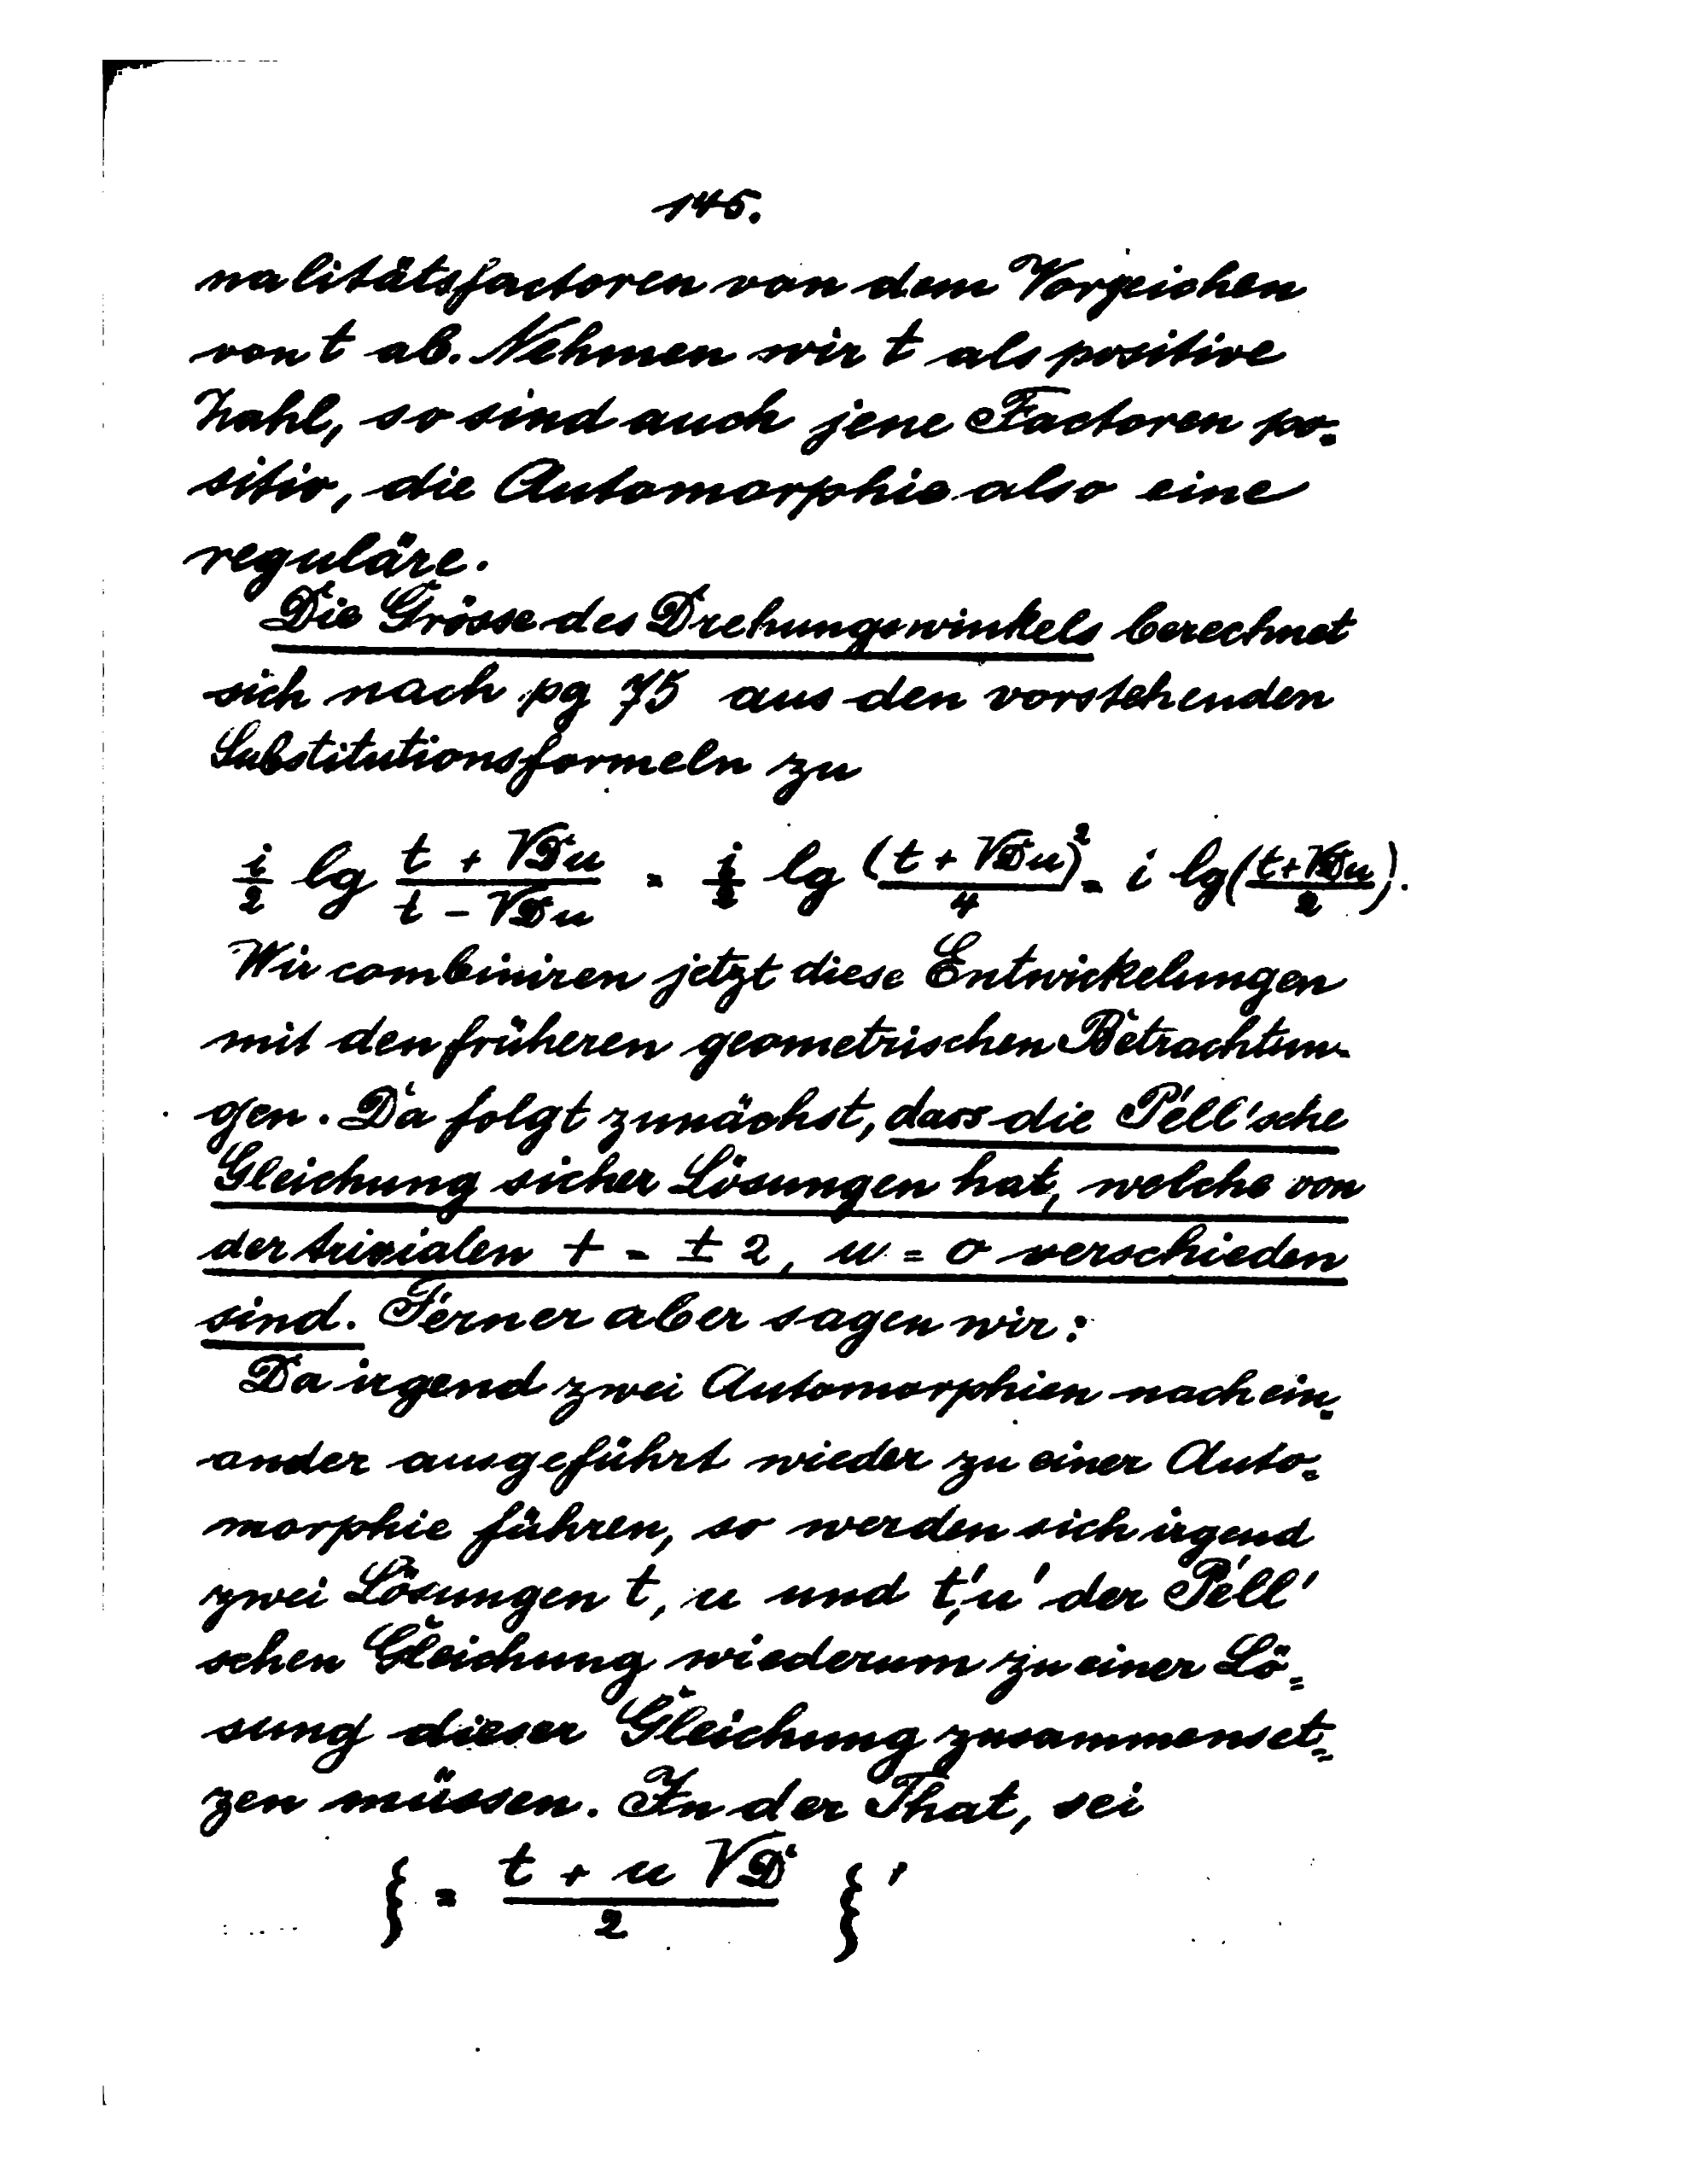 145.
nalitätsfactoren von dem Vorzeichen
von t ab. Nehmen wir t als positive
Zahl, so sind auch jene Factoren po=
sitiv, die Automorphie also eine
reguläre.
Die Grösse des Drehungswinkels berechnet
sich nach pg 75 aus den vorstehenden
Substitutionsformeln zu
i/2 lg (t + √D u)/(t − √D u) = i/2 lg (t + √D u)²/4 = i lg((t + √D u)/2).
Wir combiniren jetzt diese Entwickelungen
mit den früheren geometrischen Betrachtun-
gen. Da folgt zunächst, dass die Pell'sche
Gleichung sicher Lösungen hat, welche von
der trivialen t = ± 2, u = 0 verschieden
sind. Ferner aber sagen wir:
Da irgend zwei Automorphien nach ein=
ander ausgeführt wieder zu einer Auto=
morphie führen, so werden sich irgend
zwei Lösungen t, u und t', u' der Pell'
schen Gleichung wiederum zu einer Lö=
sung dieser Gleichung zusammenset=
zen müssen. In der That, sei
{ = (t + u √D)/2 }'